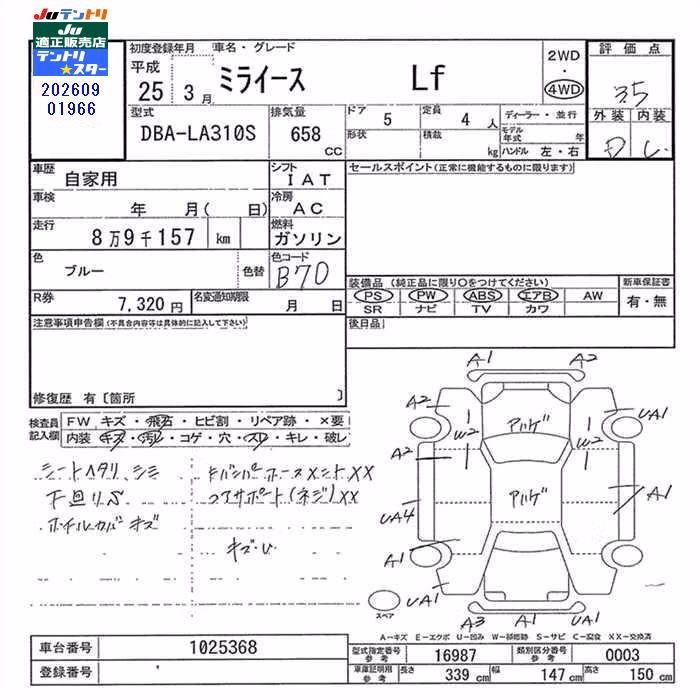 JUテントリ
JU
適正販売店
テントリ
★スター
202609
01966
初度登録年月 車名・グレード
平成
25 3月
ミライース Lf
2WD
・
4WD
評価点
3.5
外装 内装
D C
型式 排気量
DBA-LA310S 658 CC
ドア 5 定員 4 人
形状 積載 kg
ディーラー・並行
モデル年式 年
ハンドル 左・右
車歴 自家用
シフト IAT
車検 年 月( 日)
冷房 AC
走行 8万9千157 km
燃料 ガソリン
色 ブルー 色替
色コード B70
R券 7,320円
名変通知期限 月 日
セールスポイント(正常に機能するものに限ります)
装備品(純正品に限り○をつけてください)
PS PW ABS エアB AW
SR ナビ TV カワ
新車保証書
有・無
後日品
注意事項申告欄(不具合内容等は具体的に記入して下さい)
修復歴 有〔箇所 〕
検査員記入欄
FW キズ・飛石・ヒビ割・リペア跡・×要
内装 キズ・汚レ・コゲ・穴・スレ・キレ・破レ
シートヘタリ シミ
下回りS
ホイルカバキズ
XX
コアサポート(ネジ)XX
キズ・U
A1 A2
A2 UA1
アハゲ
W2 W2
A2
アハゲ
UA4 A1
A1
UA1
A3 A1 UA1
スペア
A-キズ E-エクボ U-凹み W-補修跡 S-サビ C-腐食 XX-交換済
車台番号 1025368
登録番号
型式指定番号 参考 16987
類別区分番号 参考 0003
車庫証明用 参考 長さ 339 cm 幅 147 cm 高さ 150 cm